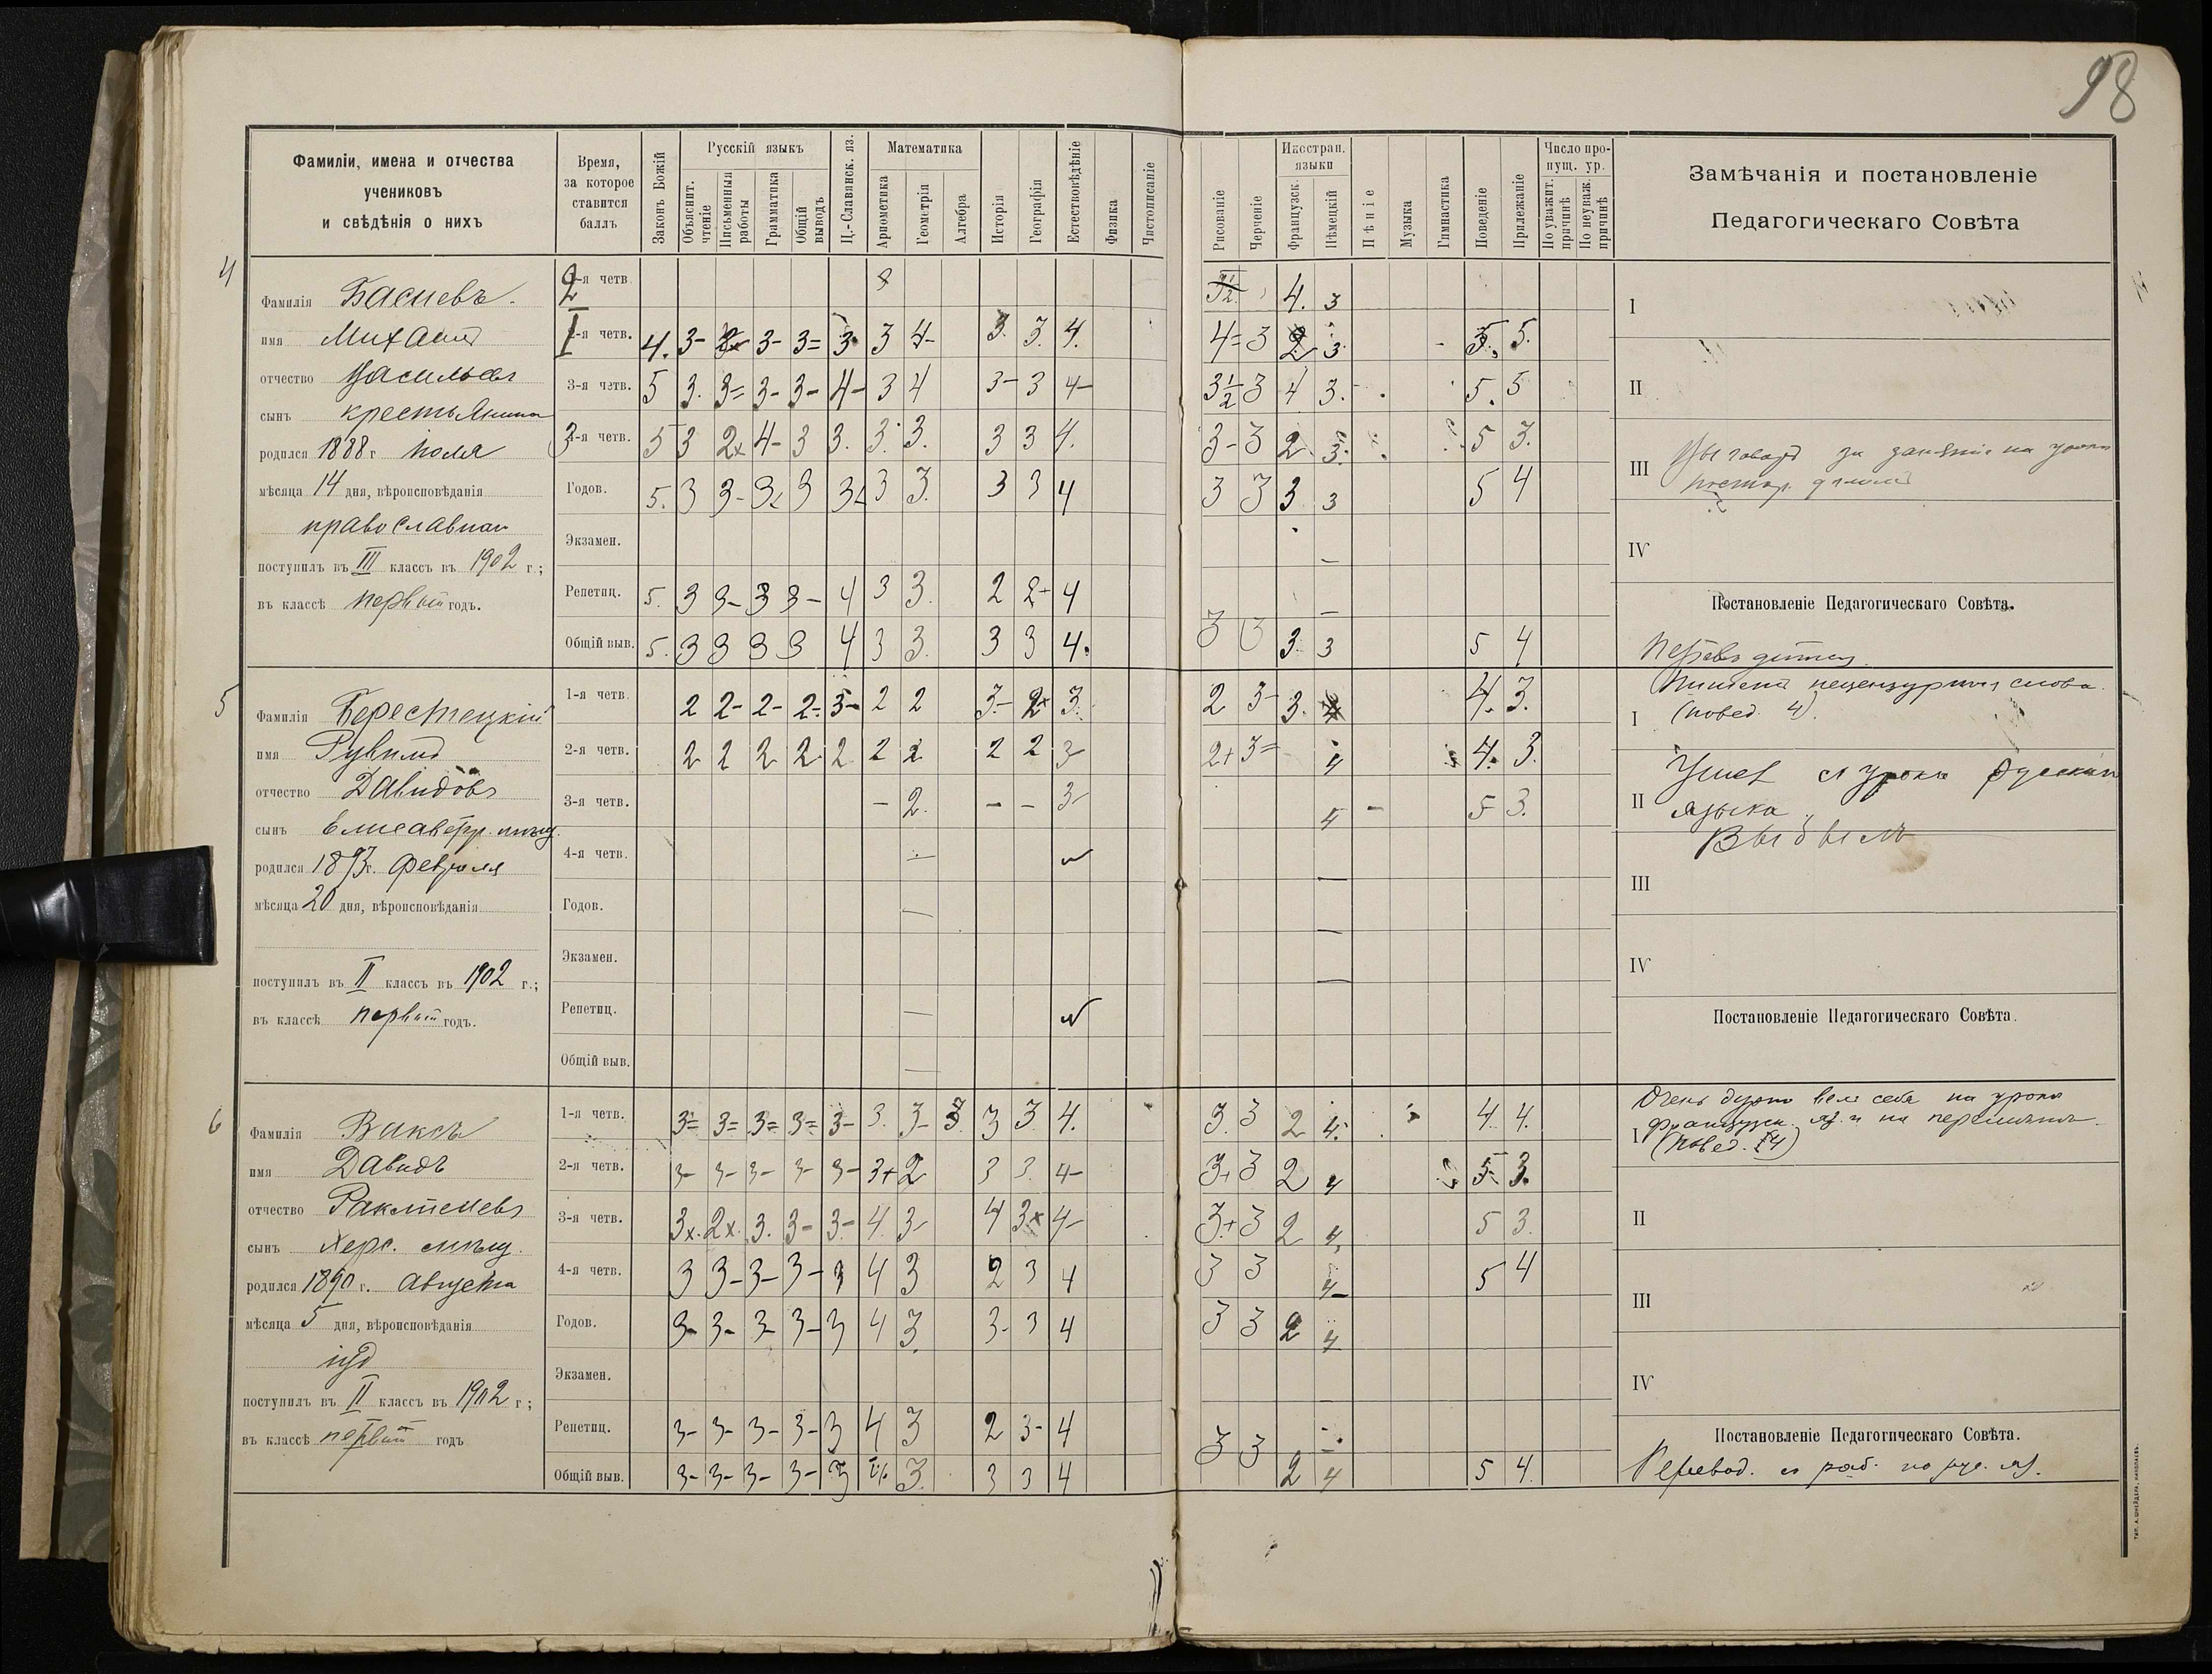 98
Фамиліи, имена и отчества
учениковъ
и свѣдѣнія о нихъ
Время,
за которое
ставится
баллъ
Законъ Божій
Русскій языкъ
Объяснит. чтеніе
Письменныя работы
Грамматика
Общій выводъ
Ц.-Славянск. яз.
Математика
Ариѳметика
Геометрія
Алгебра
Исторія
Географія
Естествовѣдѣніе
Физика
Чистописаніе
Рисованіе
Черченіе
Иностран. языки
Французск.
Нѣмецкій
Пѣніе
Музыка
Гимнастика
Поведеніе
Прилежаніе
Число пропущ. ур.
По уважит. причинѣ
По неуваж. причинѣ
Замѣчанія и постановленіе
Педагогическаго Совѣта
4
Фамилія Басиевъ.
имя Михаилъ
отчество Васильевъ
сынъ крестьянина
родился 1888 г. іюля
мѣсяца 14 дня, вѣроисповѣданія
православнаго
поступилъ въ III классъ въ 1902 г.;
въ классѣ первый годъ.
2-я четв. 4. 3
I-я четв. 4. 3- 3- 3= 3 3 4- 3. 3. 4. 4= 3 2 3. 5. 5.
3-я четв. 5 3. 3= 3- 3- 4- 3 4 3- 3 4- 3½ 3 4 3. 5. 5
3-я четв. 5 3 2x 4- 3 3. 3. 3. 3 3 4. 3- 3 2 3. 5 3.
Годов. 5. 3 3- 3 3 3 3 3. 3 3 4 3 3 3 3 5 4
Экзамен.
Репетиц. 5. 3 3- 3 3- 4 3 3. 2 2+ 4
Общій выв. 5. 3 3 3 3 4 3 3. 3 3 4. 3 3 3. 3 5 4
I
II
III Выговоръ за занятіе на урокѣ
IV
Постановленіе Педагогическаго Совѣта.
5
Фамилія Берестецкій
имя Рувимъ
отчество Давидовъ
сынъ Елисаветгр. мѣщ.
родился 1893 г. февраля
мѣсяца 20 дня, вѣроисповѣданія
поступилъ въ II классъ въ 1902 г.;
въ классѣ первый годъ.
1-я четв. 2 2- 2- 2- 3- 2 2 3- 2x 3. 2 3- 3. 4 4. 3.
2-я четв. 2 2 2 2 2 2 2 2 2 3- 2+ 3= 4 4. 3.
3-я четв. - 2. - - 3- 4 - 5 3.
4-я четв.
Годов.
Экзамен.
Репетиц.
Общій выв.
Пишетъ нецензурныя слова.
I (повед. 4).
Ушел съ урока русскаго
II языка
Выбылъ
III
IV
Постановленіе Педагогическаго Совѣта.
6
Фамилія Ваксъ
имя Давидъ
отчество
сынъ Херс. мѣщ.
родился 1890 г. Августа
мѣсяца 5 дня, вѣроисповѣданія
іуд
поступилъ въ II классъ въ 1902 г.;
въ классѣ первый годъ
1-я четв. 3= 3= 3= 3= 3- 3. 3- 3 3 3. 4. 3. 3 2 4. 4. 4.
2-я четв. 3- 3- 3- 3- 3- 3+ 2 3 3. 4- 3+ 3 2 4 5- 3.
3-я четв. 3x. 2x. 3. 3- 3- 4. 3- 4 3x 4- 3+ 3 2 4. 5 3.
4-я четв. 3 3- 3- 3- 3 4 3 2 3 4 3 3 4- 5 4
Годов. 3- 3- 3- 3- 3 4 3. 3- 3 4 3 3 2 4
Экзамен.
Репетиц. 3- 3- 3- 3- 3 4 3 2 3- 4
Общій выв. 3- 3- 3- 3- 3 4 3. 3 3 4 3 3 2 4 5 4.
Очень дурно велъ себя на урокѣ
I французск. яз. и на перемѣнѣ.
(повед. 4)
II
III
IV
Постановленіе Педагогическаго Совѣта.
Перевод. съ раб. по рус. яз.